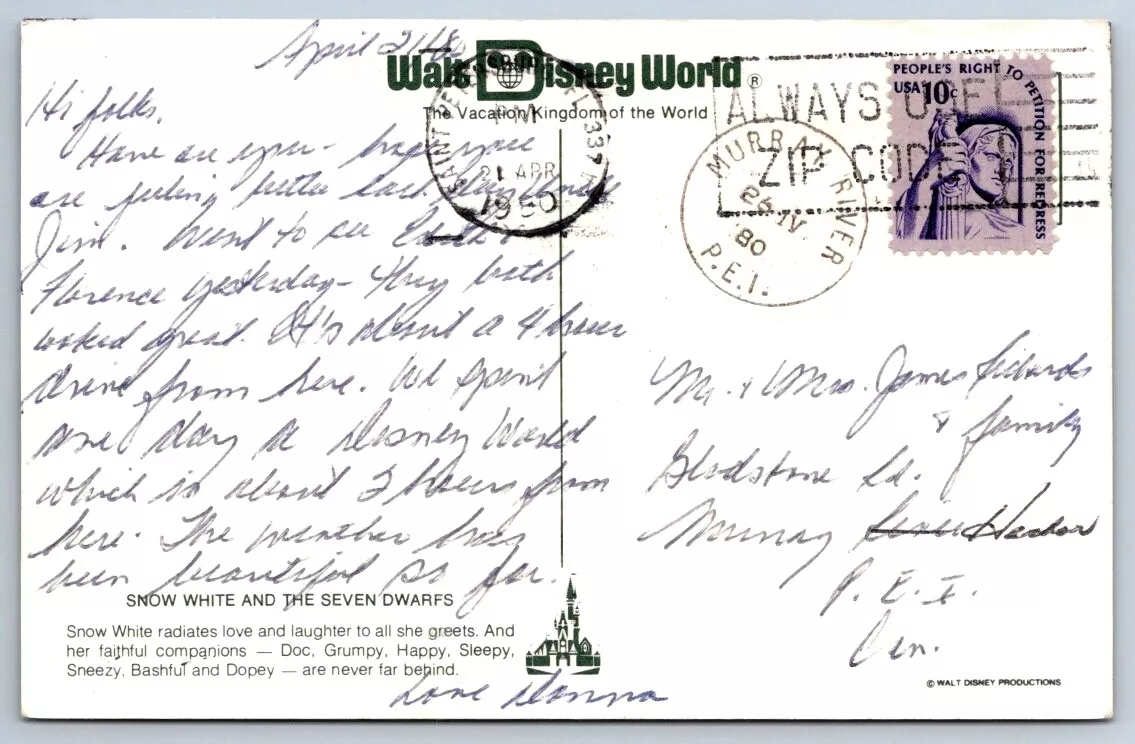 April 21/80
Walt Disney World®
The Vacation Kingdom of the World
Hi folks,
How are you - hope you
are feeling better
Jim. Went to see Edith &
Florence yesterday - they both
looked great. It's about a 4 hour
drive from here. We spent
one day a Disney World
which is about 2 hours from
here. The weather has
been beautiful so far.
Love Donna
SNOW WHITE AND THE SEVEN DWARFS
Snow White radiates love and laughter to all she greets. And
her faithful companions — Doc, Grumpy, Happy, Sleepy,
Sneezy, Bashful and Dopey — are never far behind.
SAINT PETERSBURG FL 337
PM
21 APR
1980
ALWAYS USE
ZIP CODE
MURRAY RIVER
26 IV
80
P.E.I.
PEOPLE'S RIGHT TO PETITION FOR REDRESS
USA 10c
Mr. & Mrs. James
& family
Gladstone Rd.
Murray River Harbor
P.E.I.
Can.
© WALT DISNEY PRODUCTIONS